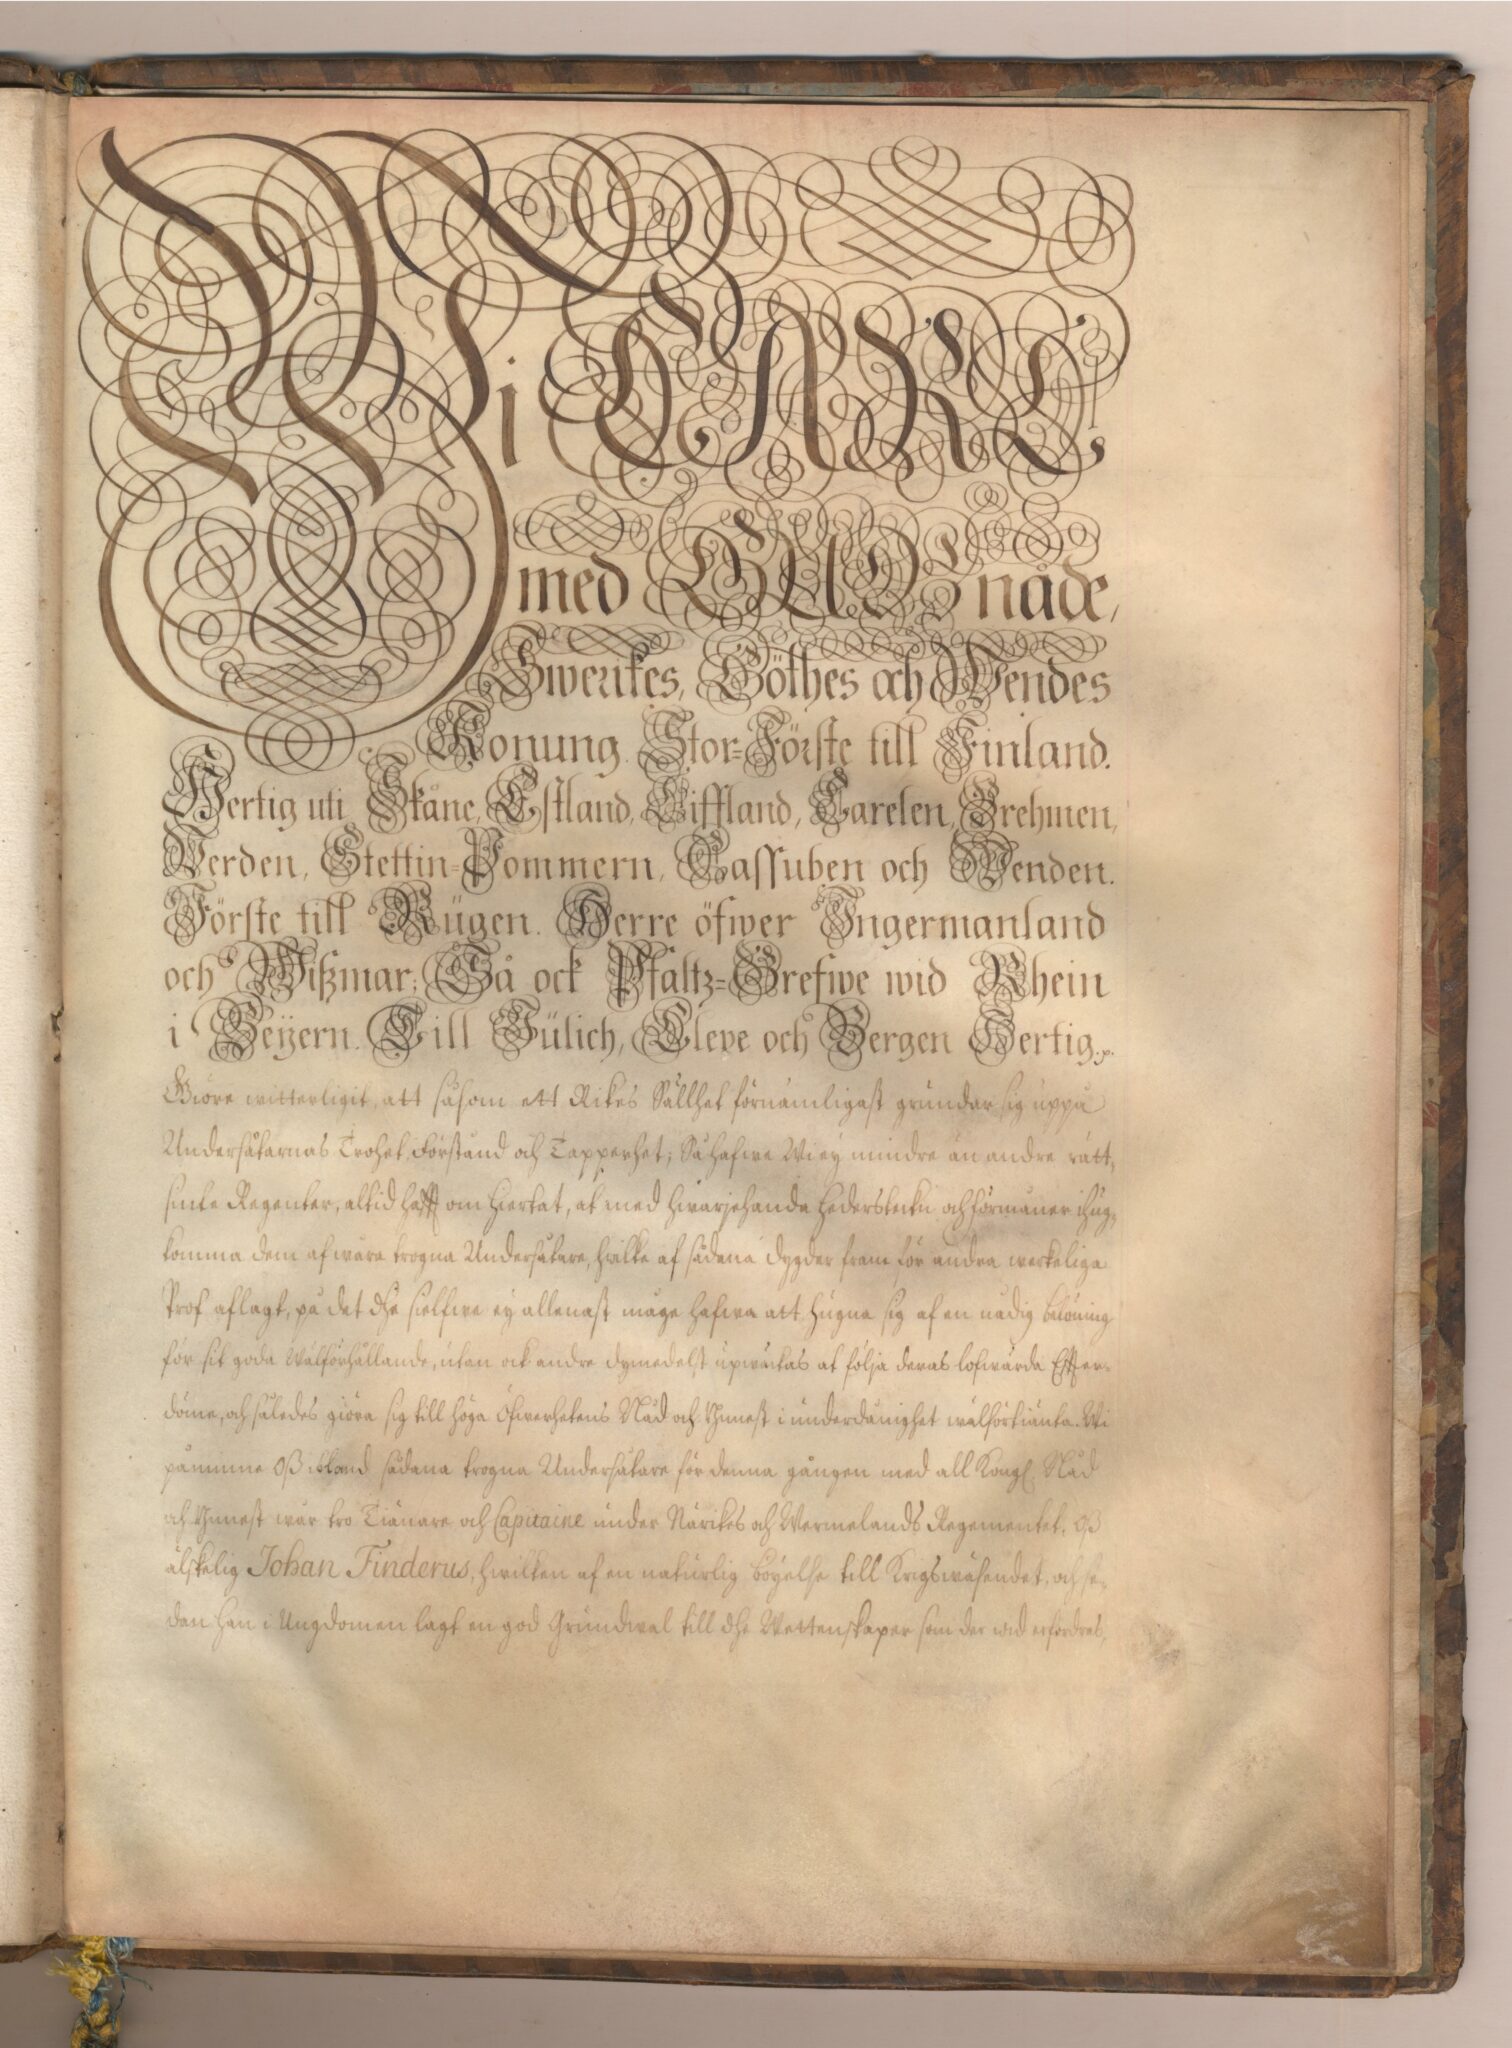 Wi CARL
med GUDz nåde,
Swerikes, Göthes och Wendes
Konung. Stor-Förste till Finland.
Hertig uti Skåne, Estland, Liffland, Carelen, Brehmen,
Verden, Stettin-Pommern, Cassuben och Wenden.
Förste till Rügen. Herre öfwer Ingermanland
och Wißmar; Så ock Pfaltz-Grefwe wid Rhein
i Beÿern. Till Jülich, Cleve och Bergen Hertig.p.
Giöre witterligit, att såsom ett Rikes Sällhet förnämligast grundar sig uppå
Undersåtarnas Trohet, Förstånd och Tapperhet; Så hafwe Wi ey mindre än andre rätt-
sinte Regenter, altid hafft om Hiertat, at med hwarjehanda hedersteckn och förmåner ihug-
komma dem af wåra trogna Undersåtare, hwilke af sådana dygder fram för andra werkeliga
Prof aflagt, på det dhe sielfwe ey allenast måge hafwa att hugna sig af en nådig belöning
för sit goda Wälförhållande, utan ock andre dymedelst upwäckas at följa deras lofwärda Effter-
döme, och således giöra sig till höga Öfwerhetens Nåd och Ynnest i underdånighet wälförtiänta. Wi
påminne Oß ibland sådana trogna Undersåtare för denna gången med all Kongl. Nåd
och Ynnest wår tro Tiänare och Capitaine under Närikes och Wermelands Regementet, Oß
älskelig Johan Finderus, hwilken af en naturlig böyelse till Krigswäsendet, och se-
dan han i Ungdomen lagt en god Grundwal till dhe Wettenskaper som der wid erfordras,